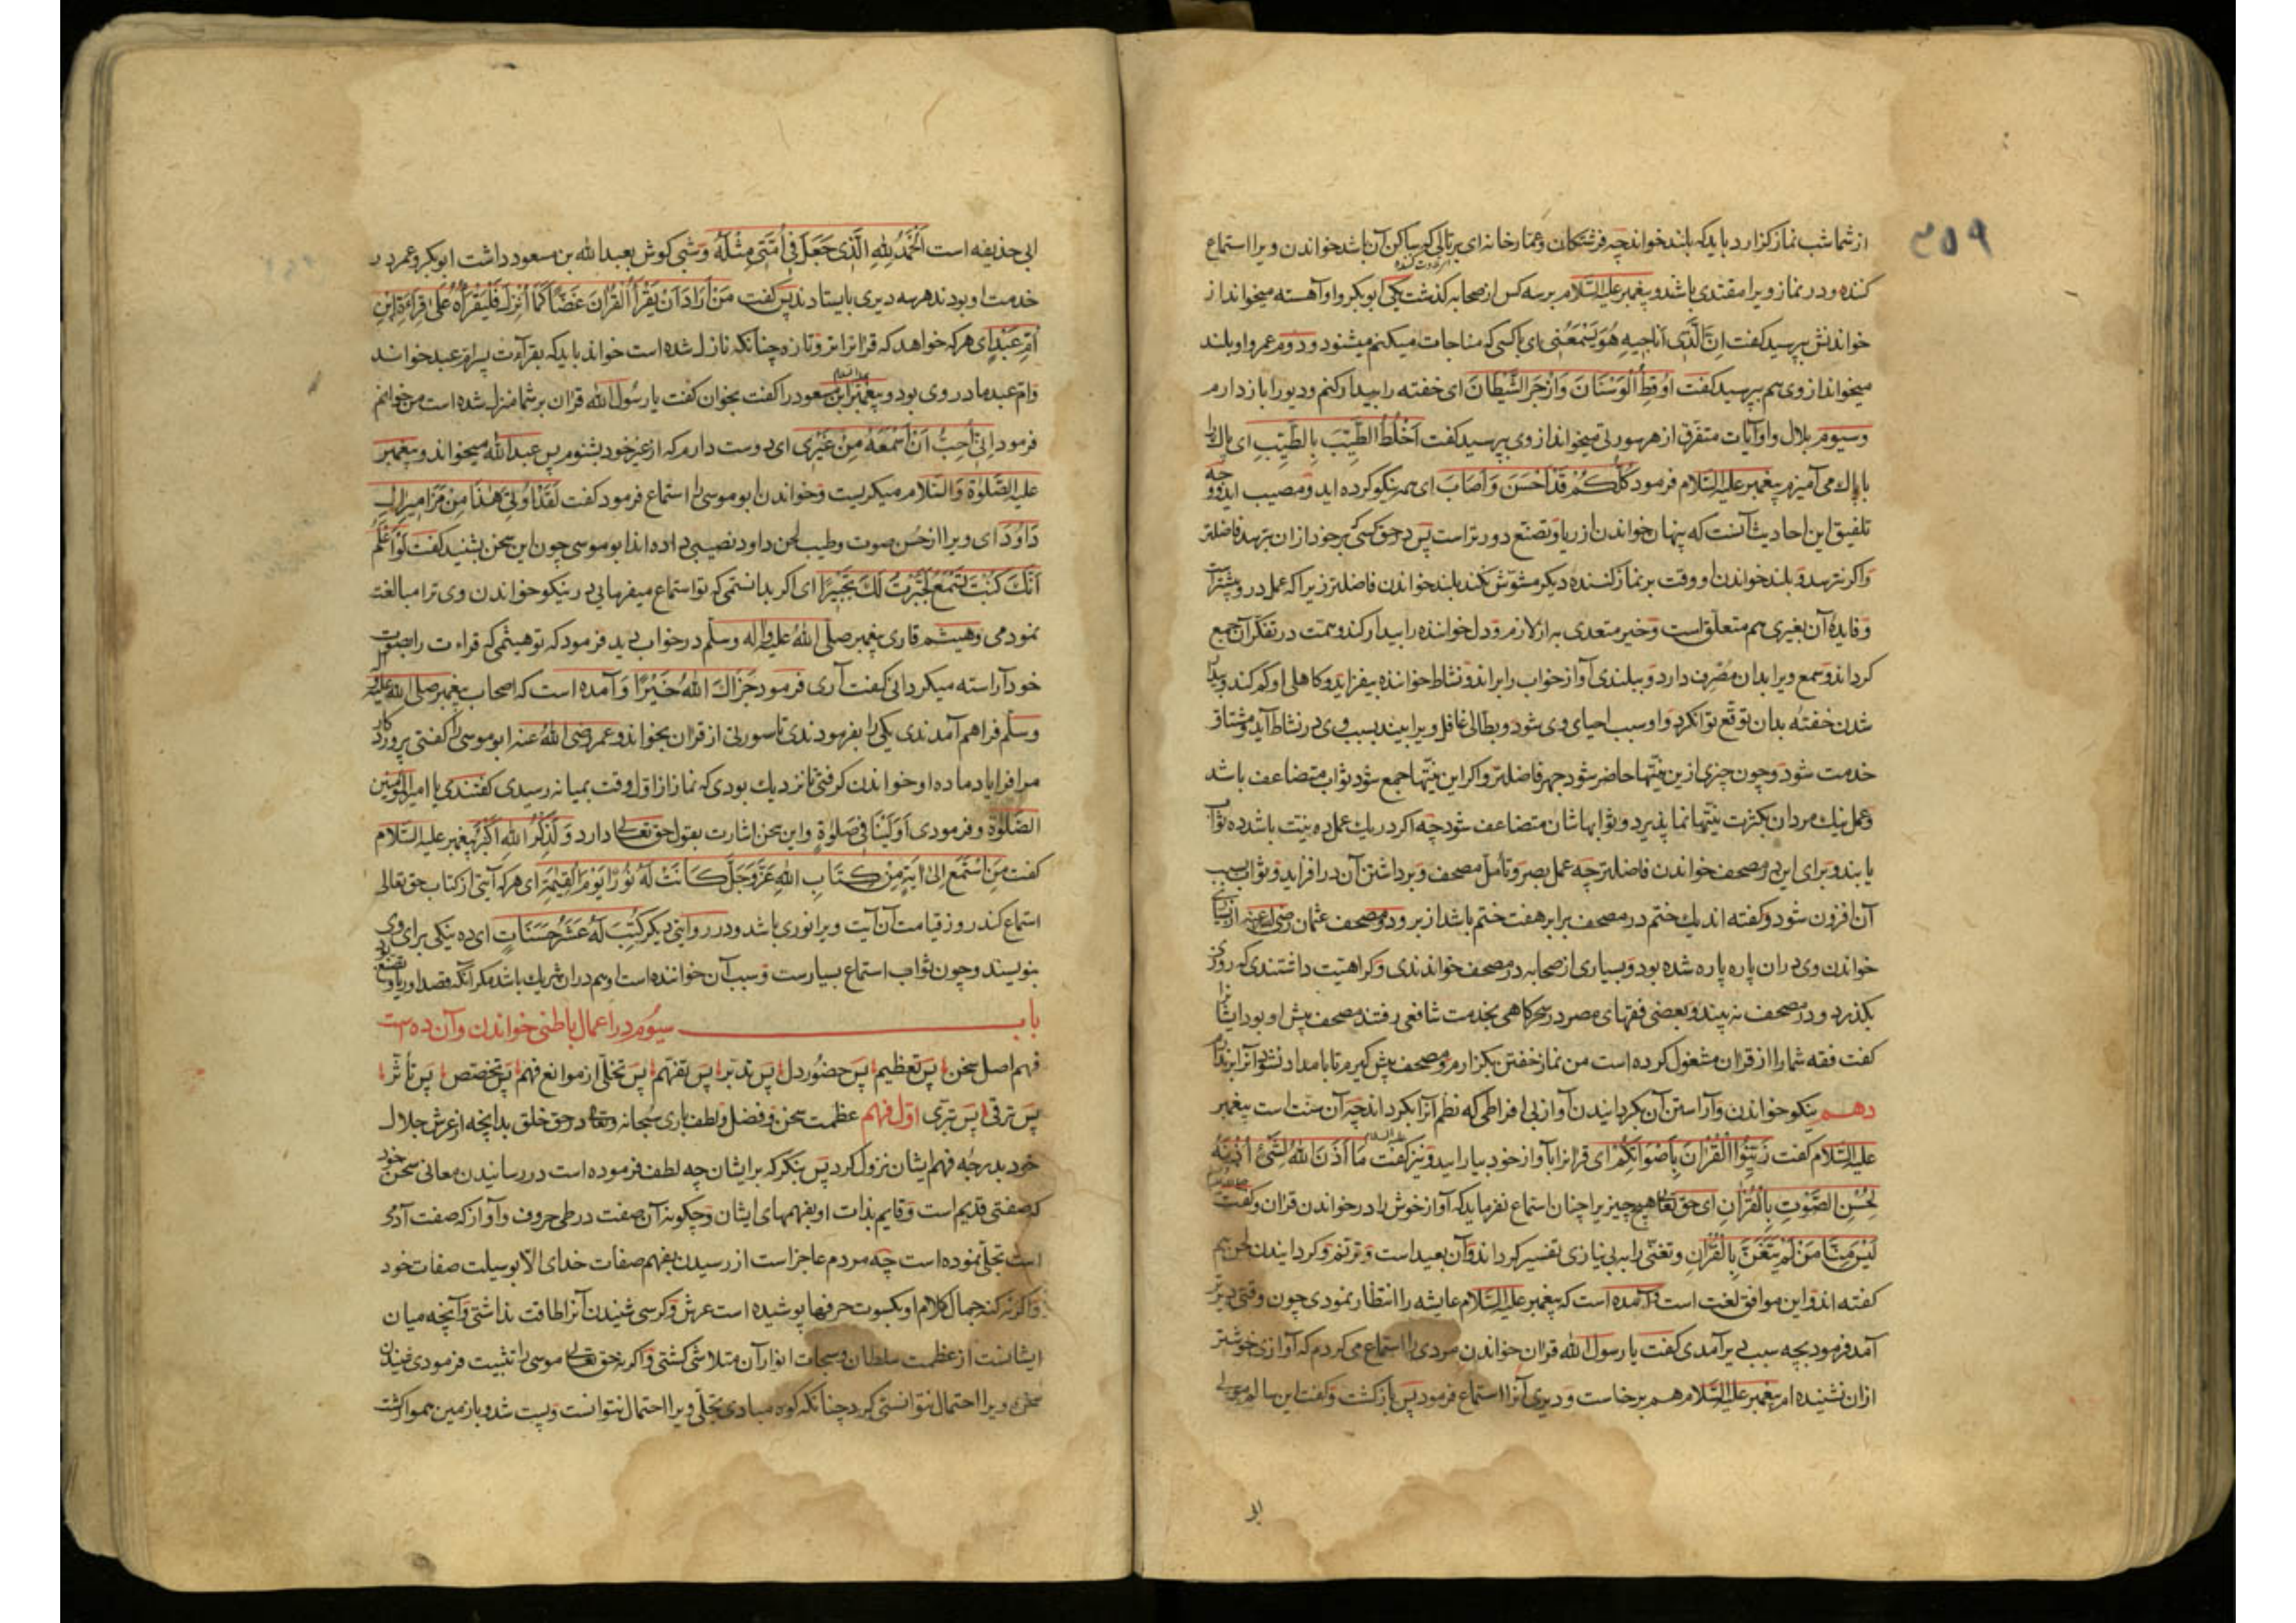 ۳۵۹
از شما شب نماز کزارد باید که بلند خواند چه فرشتکان و عمار خانه ای پریانی که ساکن آن باشد خواندن ویرا استماع
کننده و در نماز ویرا مقتدی باشد و پیغمبر علیه السلام بر سه کس از صحابه کذشت یکی ابوبکر و او آهسته میخواند از
خواندنش بپرسید کفت اِنَّ الَّذی اُناجیهِ هُوَ یَسْمَعُنی ای با کسی که مناجات میکنم میشنود و دوم عمر و او بلند
میخواند از وی هم بپرسید کفت اوقِظُ الْوَسْنانَ وَازْجَرُ الشَّیْطانَ ای خفته را بیدار کنم و دیو را باز دارم
وسیوم بلال و او آیات متفرق از هر سورتی میخواند از وی بپرسید کفت اَخْلُطُ الطَّیِّبَ بِالطَّیِّبِ ای پاک را
با پاک می آمیزم پیغمبر علیه السلام فرمود کُلُّکُمْ قَدْ اَحْسَنَ وَاَصَابَ ای همه نیکو کرده اید و مصیب اید و وجه
تلفیق این احادیث آنست که پنهان خواندن از ریا و تصنع دورتر است پس در حق کسی که بر خود از ان بترسد فاضلتر
واکر نترسد و بلند خواندن او وقت بر نماز کننده دیکر مشوش نکند بلند خواندن فاضلتر زیرا که عمل در و بیشتر است
و فایدۀ آن بغیری هم متعلق است و خیر متعدی به از لازم و دل خواننده را بیدار کند و همت در تفکر آن جمع
کرداند و سمع ویرا بدان مصرف دارد و ببلندی آواز خواب را براند و نشاط خواننده بیفزاید و کاهلی او کم کند و بیدار
شدن خفته بدان توقع توان کرد و او سبب احیای وی شود و بطالی غافل ویرا بیند بسبب وی در نشاط آید و مشتاق
خدمت شود و چون چیزی ازین نیتها حاضر شود جهر فاضلتر واکر این نیتها جمع شود ثواب متضاعف باشد
و عمل نیک مردان بکثرت نیتها نما پذیرد و ثوابهاشان متضاعف شود چه اکر در یک عمل ده نیت باشد ده ثواب
یابند و برای این در مصحف خواندن فاضلتر چه عمل بصر و تأمل مصحف و برداشتن آن در افزاید و ثواب بسبب
آن افزون شود و کفته اند یک ختم در مصحف برابر هفت ختم باشد از بر و دو مصحف عثمان رضی الله عنه از بسیاری
خواندن وی دران پاره پاره شده بود و بسیاری از صحابه در مصحف خواندندی و کراهیت داشتندی که روزی
بکذرد و در مصحف نه بینند و بعضی فقهای مصر در سحرکاهی بخدمت شافعی رفتند مصحف پیش او بود ایشانرا
کفت فقه شما را از قران مشغول کرده است من نماز خفتن بکزارم و مصحف پیش کیرم تا بامداد نشود آنرا برندارم
دهم نیکو خواندن و آراستن آن بکردانیدن آواز بی افراطی که نظم آنرا بکرداند چه آن سنت است پیغمبر
علیه السلام کفت زَیِّنُوا الْقُرْآنَ بِاَصْوَاتِکُمْ ای قرانرا بآواز خود بیارایید و نیز کفت مَا اَذِنَ اللهُ لِشَیْءٍ اُذْنَهُ
لِحُسْنِ الصَّوْتِ بِالْقُرْاٰنِ ای حق تعالی هیچ چیز را چنان استماع نفرماید که آواز خوش را در خواندن قران و کفت
لَیْسَ مِنَّا مَنْ لَمْ یَتَغَنَّ بِالْقُرْاٰنِ و تغنی را به بی نیازی تفسیر کرداند و آن بعید است و ترنم و کردانیدن لحن هم
کفته اند و این موافق لغت است و آمده است که پیغمبر علیه السلام عایشه را انتظار نمودی چون وقتی دیرتر
آمد فرمود بچه سبب دیر آمدی کفت یا رسول الله قران خواندن مردی را استماع می کردم که آوازی خوشتر
ازان نشنیده ام پیغمبر علیه السلام هم برخاست و دیری آنرا استماع فرمود پس باز کشت و کفت این سالم مولی
ابی
ابی حذیفه است اَلْحَمْدُ لِلّٰهِ الَّذی جَعَلَ فی اُمَّتی مِثْلَهُ و شبی کوش بعبد الله بن مسعود داشت ابوبکر و عمر در
خدمت او بودند هر سه دیری بایستادند پس کفت مَنْ اَرَادَ اَنْ یَقْرَأَ الْقُرْاٰنَ غَضًّا کَمَا اُنْزِلَ فَلْیَقْرَأْهُ عَلیٰ قِرَاءَةِ ابْنِ
اُمِّ عَبْدٍ ای هر که خواهد که قرانرا تر و تازه چنانکه نازل شده است خواند باید که بقرآءت پسر ام عبد خواند
وام عبد مادر وی بود و پیغمبر ابن مسعود را کفت بخوان کفت یا رسول الله قران بر شما منزل شده است من خوانم
فرمود اِنّی اُحِبُّ اَنْ اَسْمَعَهُ مِنْ غَیْری ای دوست دارم که از غیر خود بشنوم پس عبد الله میخواند و پیغمبر
علیه الصلوة والسلام میکریست و خواندن ابو موسی را استماع فرمود کفت لَقَدْ اُوتِیَ هٰذَا مِنْ مَزَامیرِ اٰلِ
دَاوُدَ ای ویرا از حسن صوت و طیب لحن داود نصیبی داده اند ابو موسی چون این سخن بشنید کفت لَوْ اَعْلَمُ
اَنَّکَ کُنْتَ تَسْمَعُ لَحَبَّرْتُ لَکَ تَحْبیرًا ای اکر بدانستمی که تو استماع میفرمایی در نیکو خواندن وی ترا مبالغت
نمودمی و هیشم قاری پیغمبر صلی الله علیه واله وسلم در خواب دید فرمود که تو هیثمی که قراءت را بصوت
خود آراسته میکردانی کفت آری فرمود جَزَاکَ اللهُ خَیْرًا و آمده است که اصحاب پیغمبر صلی الله علیه وآله
وسلم فراهم آمدندی یکی را بفرمودندی تا سورتی از قران بخواند و عمر رضی الله عنه ابو موسی را کفتی پروردکار
مرا فرا یاد ما ده او خواندن کرفتی تا نزدیک بودی که نماز از اول وقت بمیانه رسیدی کفتندی یا امیر المؤمنین
الصلوة و فرمودی اَوَلَسْنَا فی صَلوٰةٍ و این سخن اشارت بقول حق تعالی دارد وَلَذِکْرُ اللهِ اَکْبَرُ پیغمبر علیه السلام
کفت مَنِ اسْتَمَعَ اِلیٰ اٰیَةٍ مِنْ کِتَابِ اللهِ عَزَّ وَجَلَّ کَانَتْ لَهُ نُورًا یَوْمَ الْقِیٰمَةِ ای هر که آیتی از کتاب حق تعالی
استماع کند روز قیامت آن آیت ویرا نوری باشد و در روایتی دیکر کُتِبَ لَهُ عَشْرُ حَسَنَاتٍ ای ده نیکی برای وی
بنویسند و چون ثواب استماع بسیارست و سبب آن خواننده است او هم دران شریک باشد مکر آنکه قصد او ریا و تصنع بود
باب سیوم در اعمال باطنی خواندن و آن ده است
فهم اصل سخن پس تعظیم پس حضور دل پس تدبر پس تفهم پس تخلی از موانع فهم پس تخصص پس تأثر
پس ترقی پس تبری اول فهم عظمت سخن و فضل و لطف باری سبحانه وتعالی در حق خلق بدانچه از عرش جلال
خود بدرجۀ فهم ایشان نزول کرد پس بنکر که بر ایشان چه لطف فرموده است در رسانیدن معانی سخن خود
که صفتی قدیم است و قایم بذات او بفهمهای ایشان و چکونه آن صفت در طی حروف و آواز که صفت آدمی
است تجلی نموده است چه مردم عاجز است از رسیدن بفهم صفات خدای الا بوسیلت صفات خود
واکر نه کنه جمال کلام او بکسوت حرفها پوشیده است عرش و کرسی شنیدن آنرا طاقت نداشتی و آنچه میان
ایشانست از عظمت سلطان و سبحات انوار آن متلاشی کشتی واکر نه حق تعالی موسی را تثبیت فرمودی شنیدن
سخن ویرا احتمال نتوانستی کرد چنانکه کوه مبادی تجلی ویرا احتمال نتوانست و پست شد و با زمین هموار کشت